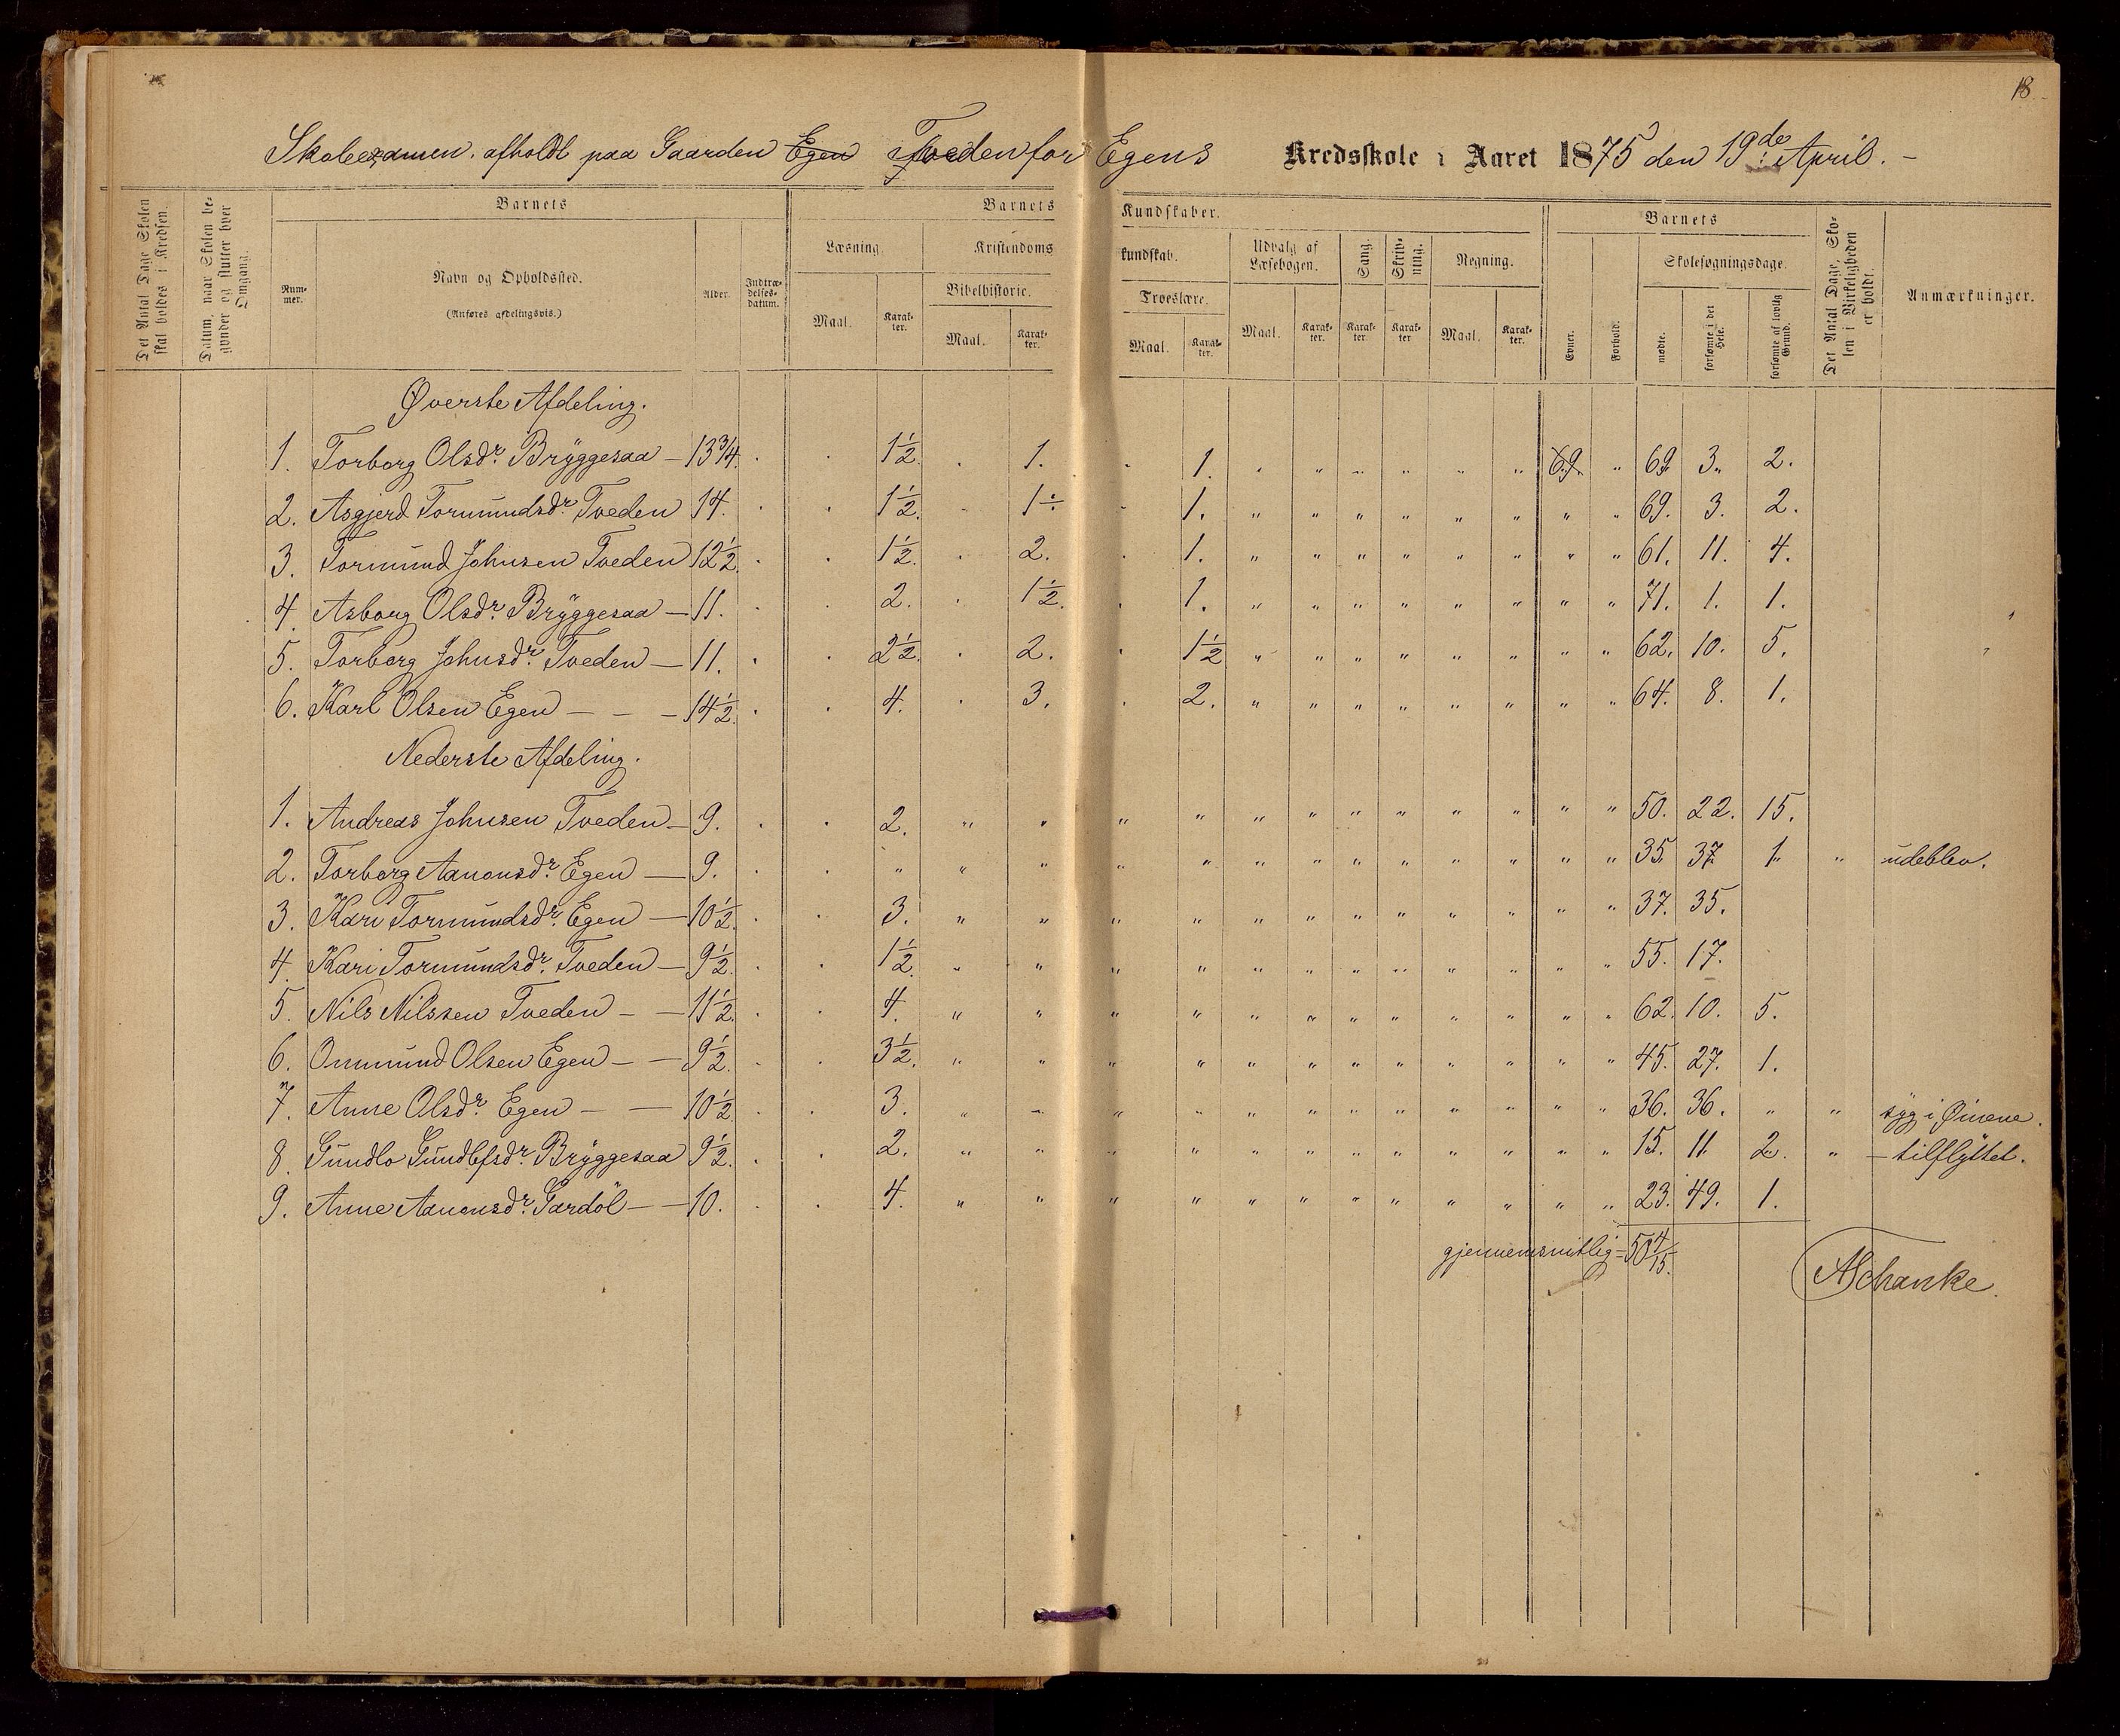 18.
Skoleexamen afholdt paa Gaarden Egen Tveden for Egens Kredsskole i Aaret 1875 den 19de April. -
Det Antal Dage Skolen skal holdes i Kredsen.
Datum, naar Skolen begynder og slutter hver Omgang.
Barnets
Nummer.
Navn og Opholdssted.
(Anføres afdelingsvis.)
Alder.
Indtrædelsesdatum.
Barnets Kundskaber.
Læsning. Kristendomskundskab. Udvalg af Læsebogen. Sang. Skrivning. Regning.
Bibelhistorie. Troeslære.
Maal. Karakter. Maal. Karakter. Maal. Karakter. Maal. Karakter. Karakter. Karakter Maal. Karakter.
Barnets
Evner. Forhold. Skolesøgningsdage.
mødte. forsømte i det Hele. forsømte af lovlig Grund.
Det Antal Dage, Skolen i Virkeligheden er holdt.
Anmærkninger.
Øverste Afdeling.
1. Torborg Olsdr. Bryggesaa - 13 3/4. 1 1/2. 1. 1. " " " " " " 69. " 69 3. 2.
2. Asgjerd Tormundsdr. Tveden 14. 1 1/2. 1 ÷ 1. " " " " " " " " 69. 3. 2.
3. Tormund Johnsen Tveden 12 1/2. 1 1/2. 2. 1. " " " " " " " " 61. 11. 4.
4. Asborg Olsdr. Bryggesaa - 11. 2. 1 1/2. 1. " " " " " " " " 71. 1. 1.
5. Torborg Johnsdr. Tveden - 11. 2 1/2. 2. 1 1/2 " " " " " " " " 62. 10. 5.
6. Karl Olsen Egen - - - 14 1/2. 4. 3. 2. " " " " " " " " 64. 8. 1.
Nederste Afdeling.
1. Andreas Johnsen Tveden - 9. 2. " " " " " " " " " " " " 50. 22. 15.
2. Torborg Aanonsdr. Egen - 9. " " " " " " " " " " " " " 35. 37 1. " udeblev.
3. Kari Tormundsdr. Egen - 10 1/2. 3. " " " " " " " " " " " " 37. 35.
4. Kari Tormundsdr. Tveden - 9 1/2. 1 1/2. " " " " " " " " " " " " 55. 17.
5. Nils Nilssen Tveden - - 11 1/2. 4. " " " " " " " " " " " " 62. 10. 5.
6. Onmund Olsen Egen - - 9 1/2. 3 1/2. " " " " " " " " " " " " 45. 27. 1.
7. Anne Olsdr. Egen - - 10 1/2. 3. " " " " " " " " " " " " 36. 36. " " syg i Øinene.
8. Gundlo Gundlfsdr. Bryggesaa 9 1/2. 2. " " " " " " " " " " " " 15. 11. 2. " - tilflyttet.
9. Anne Aanonsdr. Gardöl - - 10. 4. " " " " " " " " " " " " 23. 49. 1.
gjennemsnitlig = 50 4/15.
ASchanke.